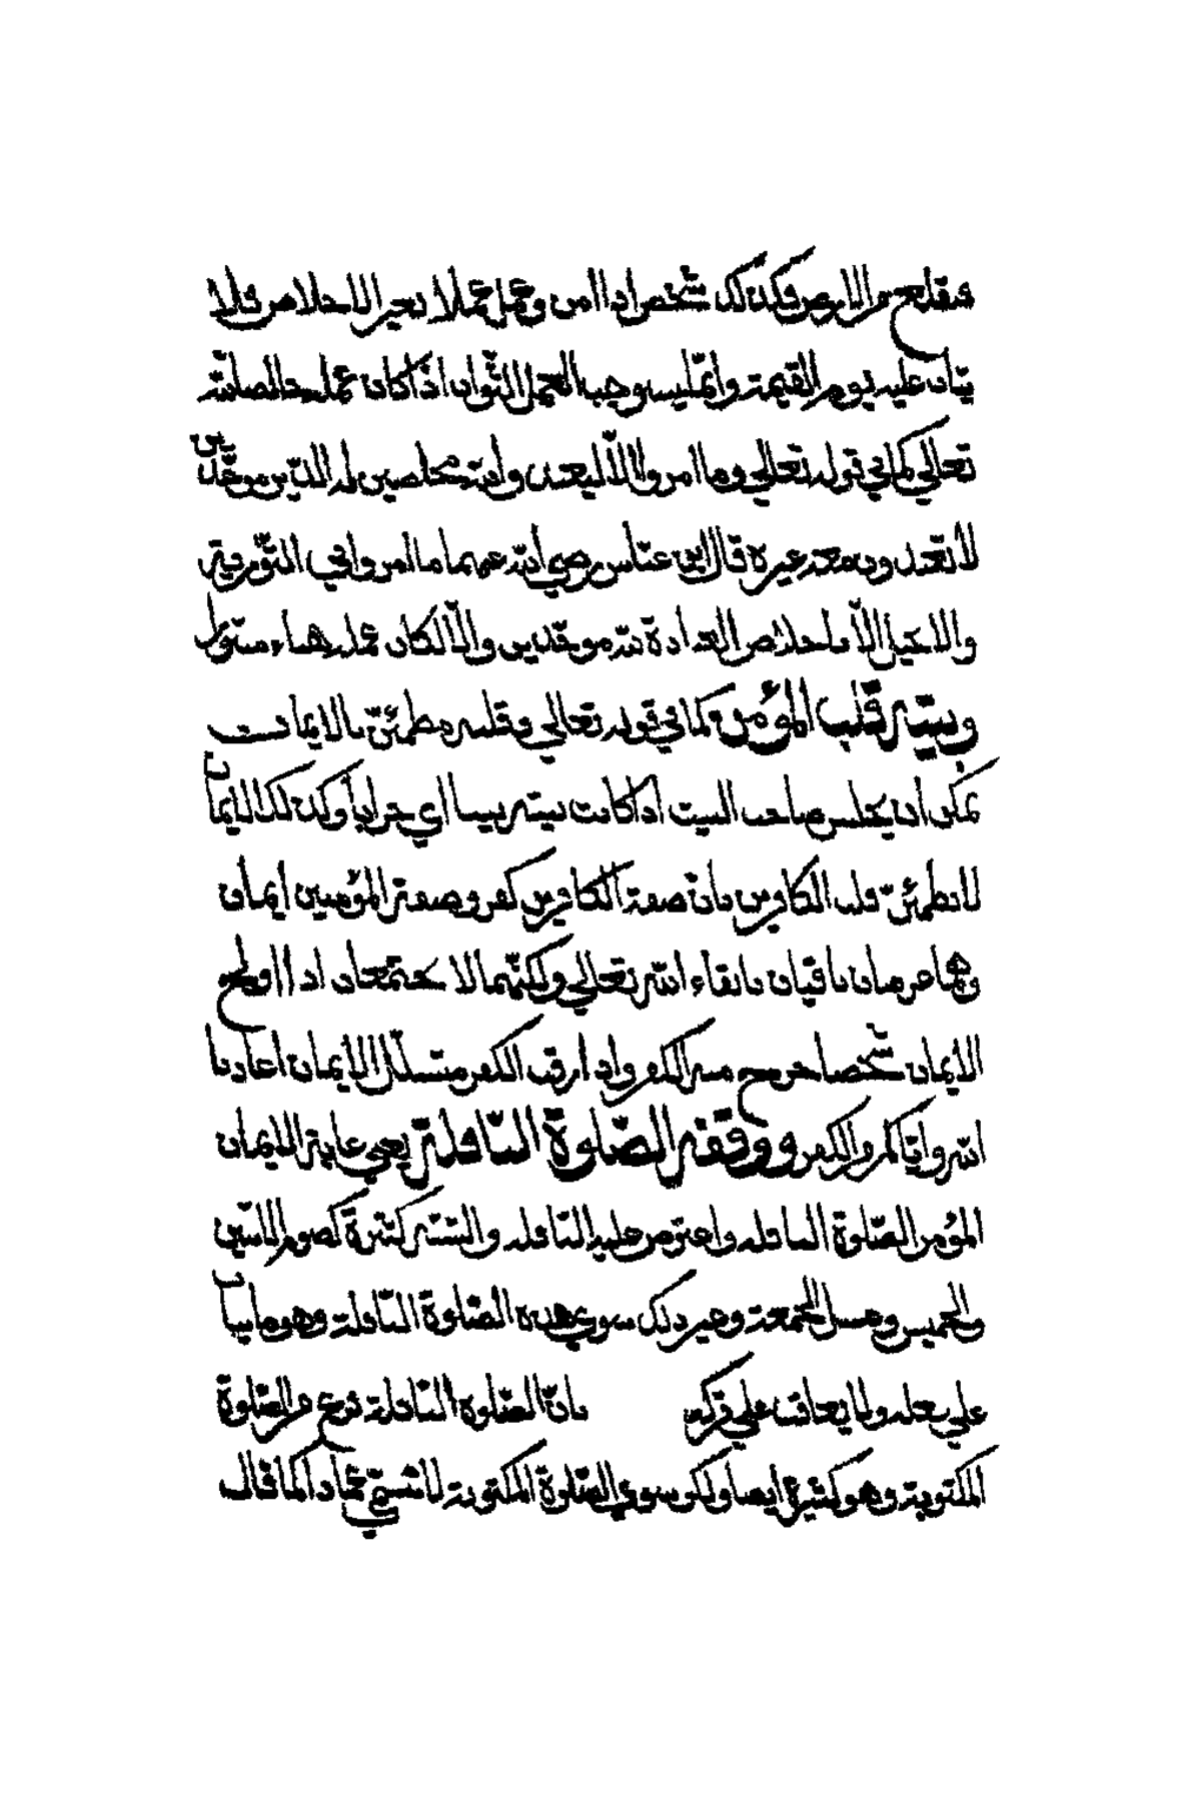 فيقلع من الارض فكذلك شخص اذا امن وعمل عملا بغير الاخلاص فلا
يثاب عليه يوم القيمة وانما يستوجب العمل الثواب اذا كان عمله خالصا لله
تعالي كما في قوله تعالي وما امروا الا ليعبدوا الله مخلصين له الدين موحدين
لا تعبدون معه غيره قال ابن عباس رضي الله عنهما ما امروا في التورية
والانجيل الا باخلاص العبادة لله موحدين والا لكان عمله هباء منثورا
وبيته قلب المؤمن كما في قوله تعالي وقلبه مطمئن بالايمان
يمكن ان يجلس صاحب البيت اذا كانت بيته بيبا اي خرابا وكذلك الايمان
لا تطمئن قلب الكافرين بان صفة الكافرين كفر وصفة المؤمنين ايمان
وهما عرضان باقيان بابقاء الله تعالي ولكنهما لا يجتمعان اذا اولج
الايمان شخصا خرج منه الكفر واذا رقب الكفر منسلا الايمان اعاذنا
الله واياكم من الكفر ووقفه الصلوة النافلة يعني غاية الايمان
المؤمن الصلوة النافلة واعترض عليه النافله والسنه كثيرة كصوم الاثنين
والخميس وغسل الجمعة وغير ذلك سوي هذه الصلوة النافلة وهو ما يثاب
علي فعله ولا يعاقب علي تركه بان الصلوة النافلة نوع من الصلوة
المكتوبة وهو كثيرة ايضا ولكن سوي الصلوة المكتوبة لا تسمي عمادا كما قال